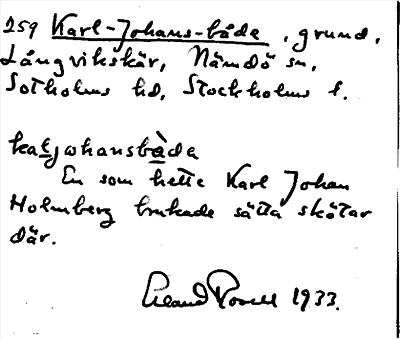 259 Karl-Johans-både, grund,
Långvikskär, Nämdö sn,
Sotholms hd, Stockholms l.
kaḷjωhansbàda
En som hette Karl Johan
Holmberg brukade sätta skötar
där.
1933.